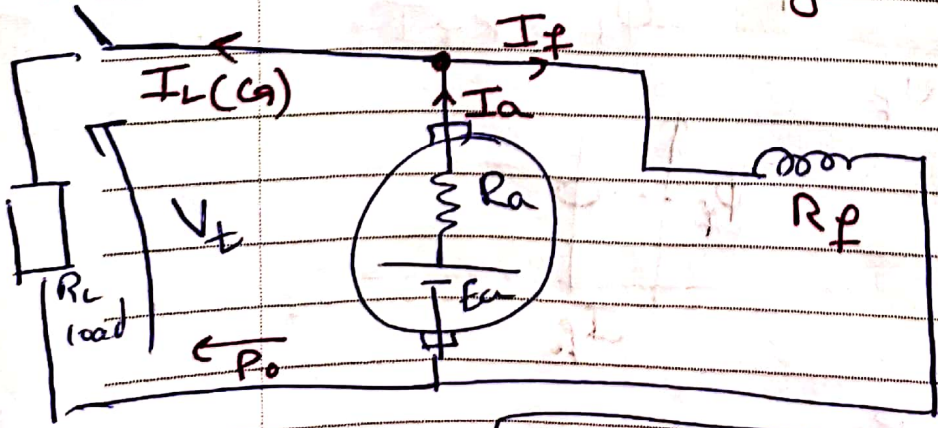 If
IL(G)
Ia
Ra
Rf
Vt
Ea
RL
load
Po